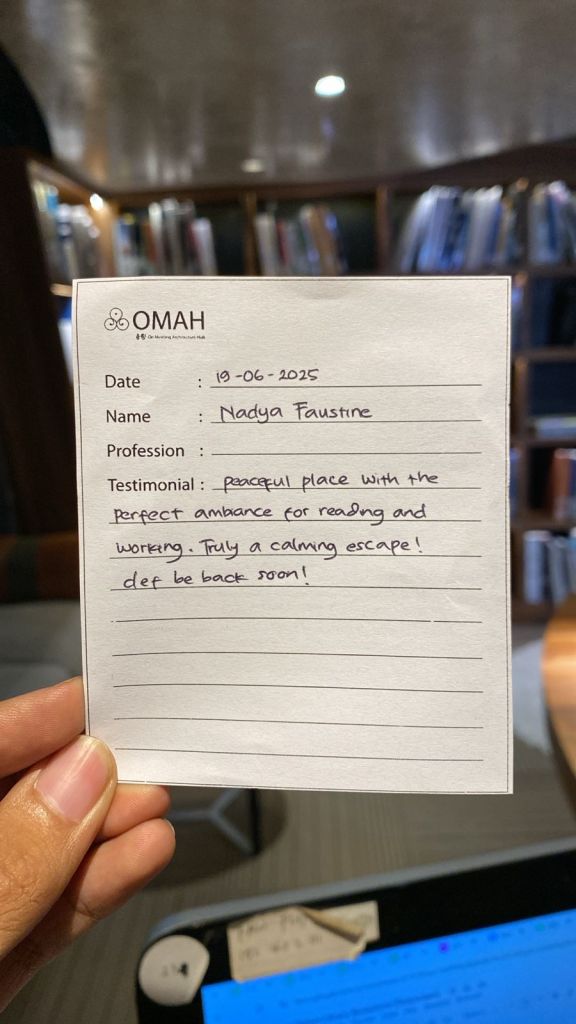 OMAH
Date : 19-06-2025
Name : Nadya Faustine
Profession :
Testimonial : peaceful place with the
perfect ambiance for reading and
working. Truly a calming escape!
def be back soon!